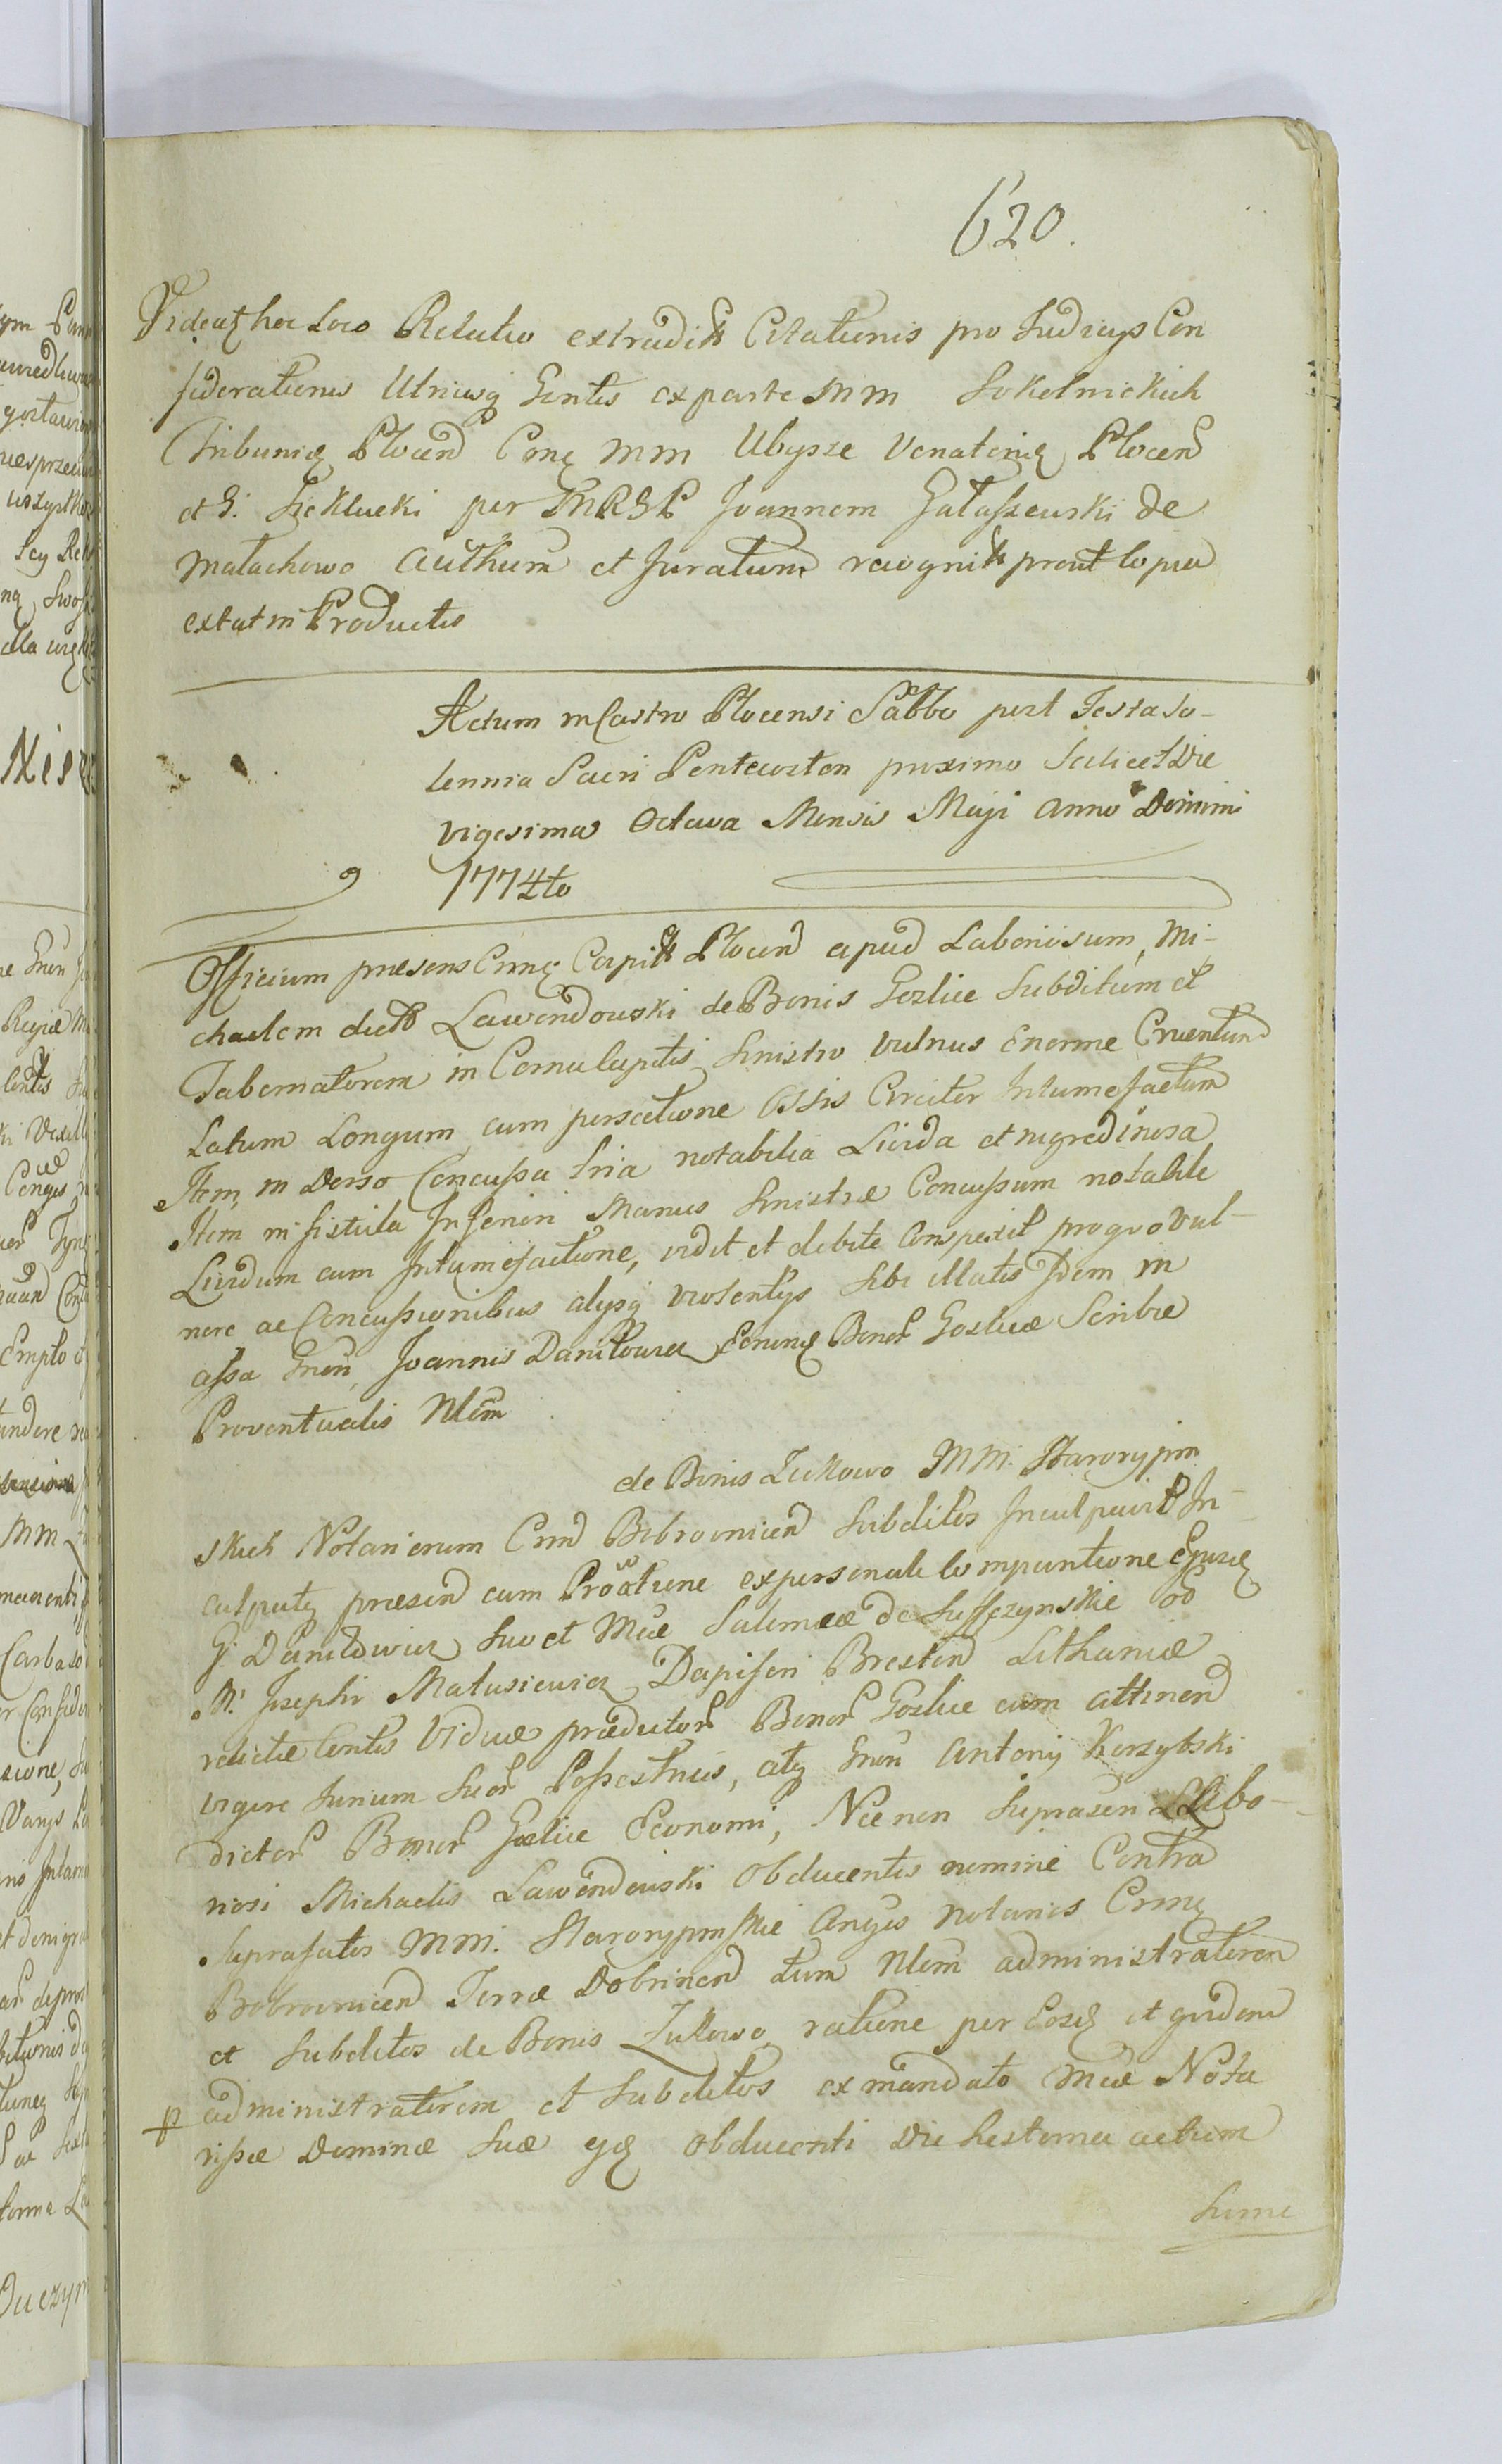 620.
Videatq hoc Loco Relatio extradit Citationis pro Judicÿs Con
fiderationis Utriusq Gentis ex parte MM Sokolnickich
Tribunis Plocen Cong MM Ubysze Venatoriq Plocen
et G. Szeklucki per MRGP Joannem Gałaszewski de
Małachowo authum et Juratum recognit prout Copia
extat in Productis
Actum in Castro Plocensi Sabbo post Festa So-
lennia Sacri Pentecosten proximo Scilicet Die
vigesima Octava Mensis Maji Anno Domini
1774to
Officium praesens Crnę Capit Plocen apud Laboriosum Mi-
chaelem dict Lawendowski de Bonis Gozlice Subditum et
Tabernatorem in Cornu Capitis Sinistro vulnus Enorme Cruentum
Latum Longum cum persectione Ossis Circiter Intumefactum
Item in Dorso Concussa tria notabilia Livida et nigredinosa
Item in fistula Inferiori Manus Sinistræ Concussum notabile
Lividum cum Intumefactione, vidit et debite Conspexit pro quo Vul-
nere ac Concussionibus alÿsq violentÿs Sibi illatis Idem in
assa Gnen Joannis Daniłowicz Crnq Bonor Gozlice Scribæ
Proventualis Nlem
de Bonis Zukowo MM. Starorypin
skich Notariorum Crnd Bobrovnicen Subditos Inculpavit In-
culpatq præsen cum Prottione ex personali Comparitione Ejusdq
G. Daniłowicz Suo et Mcæ Salomeæ de Suffczynskie oo
M. Josephi Matusiewicz Dapiferi Bresten Lithaniæ
relictæ Contis Viduæ prædictor Bonor Gozlice cum attinen
vigore Jurium Suor Possestricis, atq Gnen Antonÿ Korzybski
dictor Bonor Gozlice Economi, Necnon Suprascri Labo-
riosi Michaelis Lawendowski Obducentis nomine Contra
Suprafatos MM. Starorypinskie Cnges Notarios Crnę
Bobrovnicen Terræ Dobrinen tum Nlem administratorem
et Subditos de Bonis Zukowo ratione per Eosd et quidem
administratorem et Subditos ex mandato Mcæ Nota
rissæ Dominæ Suæ eqd Obducenti Die hesterna actum
Sume